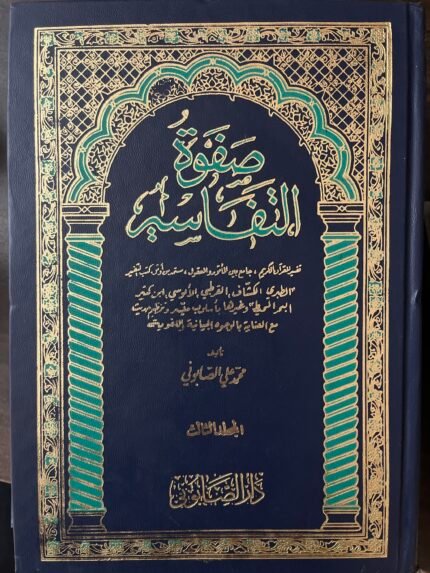 صفوة
التفاسير
تفسير للقرآن الكريم، جامع بين المأثور والمعقول، مستمد من أوثق كتب التفسير
"الطبري، الكشاف، القرطبي، الألوسي، ابن كثير
البحر المحيط" وغيرها بأسلوب ميسر، وتنظيم حديث
مع العناية بالوجوه البيانية واللغوية
تأليف
محمد علي الصابوني
المجلد الثالث
دار الصابوني